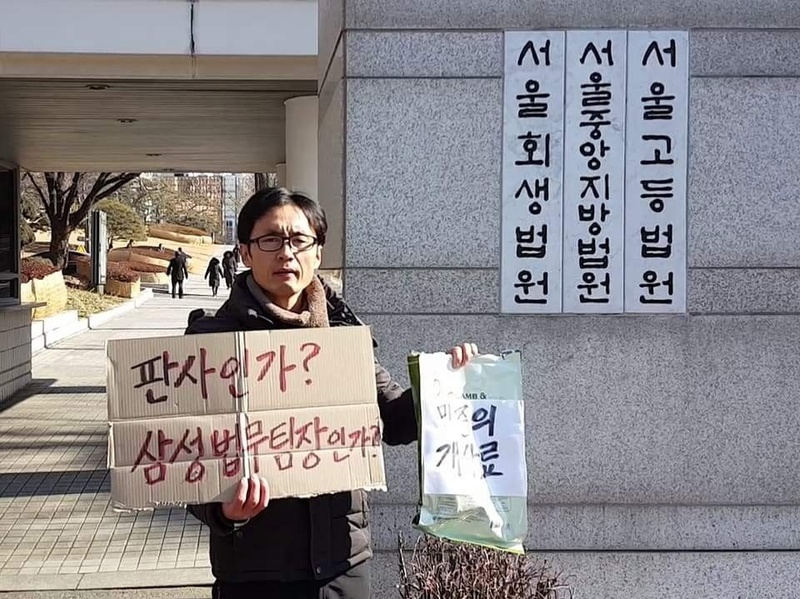 서울회생법원
서울중앙지방법원
서울고등법원
판사인가?
삼성법무팀장인가?
AMB &
의
개사료